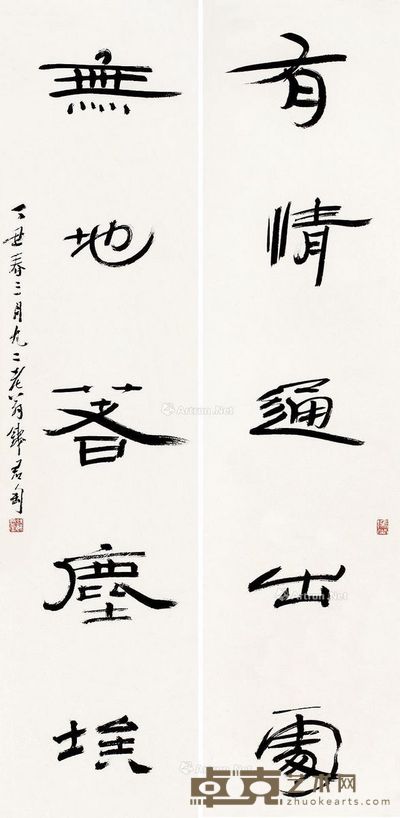 有情通出處
無地著塵埃
丁丑春三月九二老翁錢君匋
Artron.Net
Artron.Net
Artron.Net
Artron.Net
卓克艺术网
zhuokearts.com